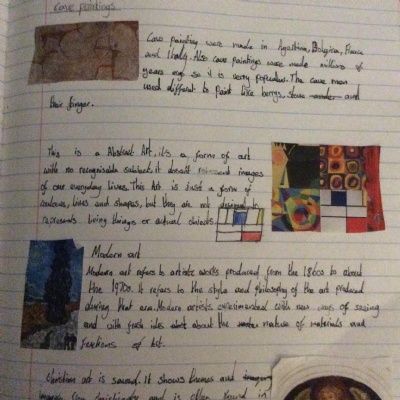 Cave paintings
Cave painting were made in Agentina, Bolgira, France
and Italy. Also cave paintings were made millions of
years ago so it is verry popular. The cave man
used diffrent to paint like berrys, and
their finger.
This is a Abstract Art, it's a form of art
with no recognisable subject, it doesn't images
of our everyday lives. This Art is Just a form of
colours, lines and shapes, but they are not designed to
represents living things or actual objects.
Modern art
Modern art refers to artistic works produced from the 1860s to about
the 1970s. It refers to the style and philosophy of the art produced
during that era. Modern artists experimented with new ways of seeing
and with fresh ides about the nature of materials and
functions of Art.
Christian art is sacred. It shows themes and
from christianity and is often found in